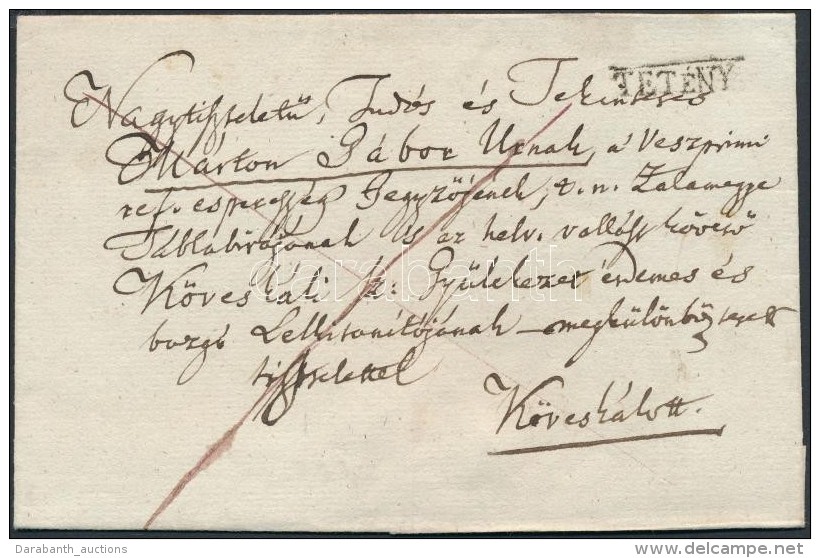 TETÉNY
Nagytiszteletű, Tudós és Tekintetes
Márton Gábor Urnak, a Veszprimi
ref. esperesség Jegyzőjének, t. n. Zalamegye
Táblabirájának és az helv. vallást követő
Köveskáli sz: Gyülekezet érdemes és
buzgó Lelkitanítójának – megkülönböztetett
tisztelettel
Köveskálott.
Darabanth
Darabanth_auctions
www.delcampe.net